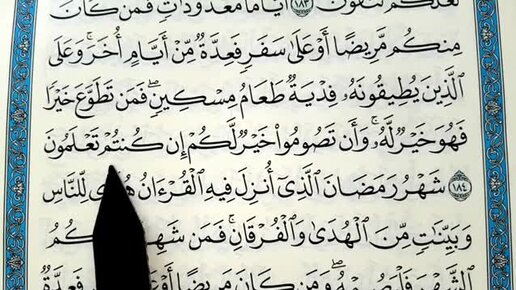 لَعَلَّكُمْ تَتَّقُونَ ١٨٣ أَيَّامًا مَّعْدُودَٰتٍ فَمَن كَانَ
مِنكُم مَّرِيضًا أَوْ عَلَىٰ سَفَرٍ فَعِدَّةٌ مِّنْ أَيَّامٍ أُخَرَ ۚ وَعَلَى
ٱلَّذِينَ يُطِيقُونَهُۥ فِدْيَةٌ طَعَامُ مِسْكِينٍ ۖ فَمَن تَطَوَّعَ خَيْرًا
فَهُوَ خَيْرٌ لَّهُۥ ۚ وَأَن تَصُومُوا۟ خَيْرٌ لَّكُمْ إِن كُنتُمْ تَعْلَمُونَ
١٨٤ شَهْرُ رَمَضَانَ ٱلَّذِىٓ أُنزِلَ فِيهِ ٱلْقُرْءَانُ هُدًى لِّلنَّاسِ
وَبَيِّنَٰتٍ مِّنَ ٱلْهُدَىٰ وَٱلْفُرْقَانِ ۚ فَمَن شَهِدَ كُمُ
ٱلشَّهْرَ فَلْيَصُمْهُ ۖ وَمَن كَانَ مَرِيضًا أَوْ فَعِدَّةٌ